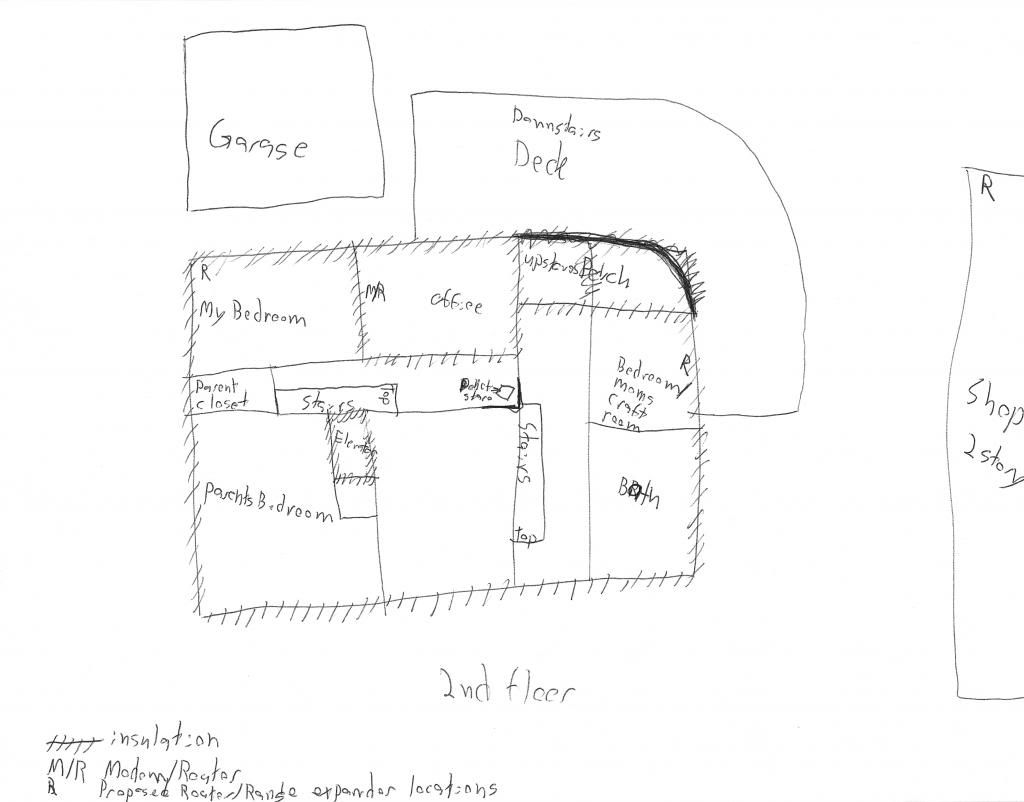 Garage
Downstairs
Deck
R
upstairs Porch
R
My Bedroom
M/R
office
Shop
2 story
Parent
closet
Stairs
Bedroom/
moms
craft
room
R
Elevator
Stairs
Parents Bedroom
Bath
top
2nd floor
insulation
M/R Modem/Router
R Proposed Router/Range expander locations